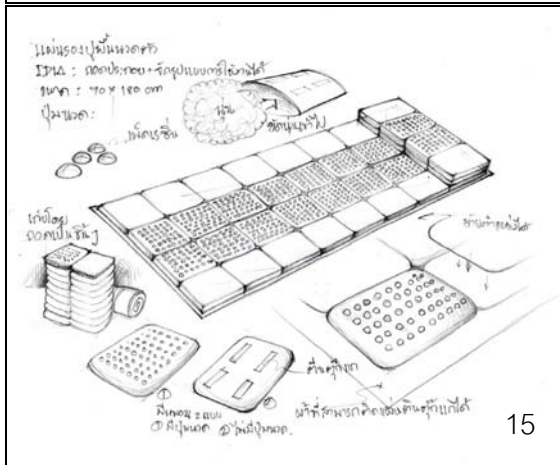 แผ่นรองปูพื้นนวดตัว
IDEA : ถอดประกอบ+จัดรูปแบบการใช้งานได้
ขนาด : 70 x 180 cm
ปุ่มนวด :
เม็ดเรซิ่น
นุ่น
ยัดนุ่นเข้าไป
เก็บโดย
ถอดเป็นชิ้นๆ
ตีนตุ๊กแก
①
②
มีหมอน 2 แบบ
① มีปุ่มนวด ② ไม่มีปุ่มนวด.
ผ้าที่สามารถติดแผ่นตีนตุ๊กแกได้
15